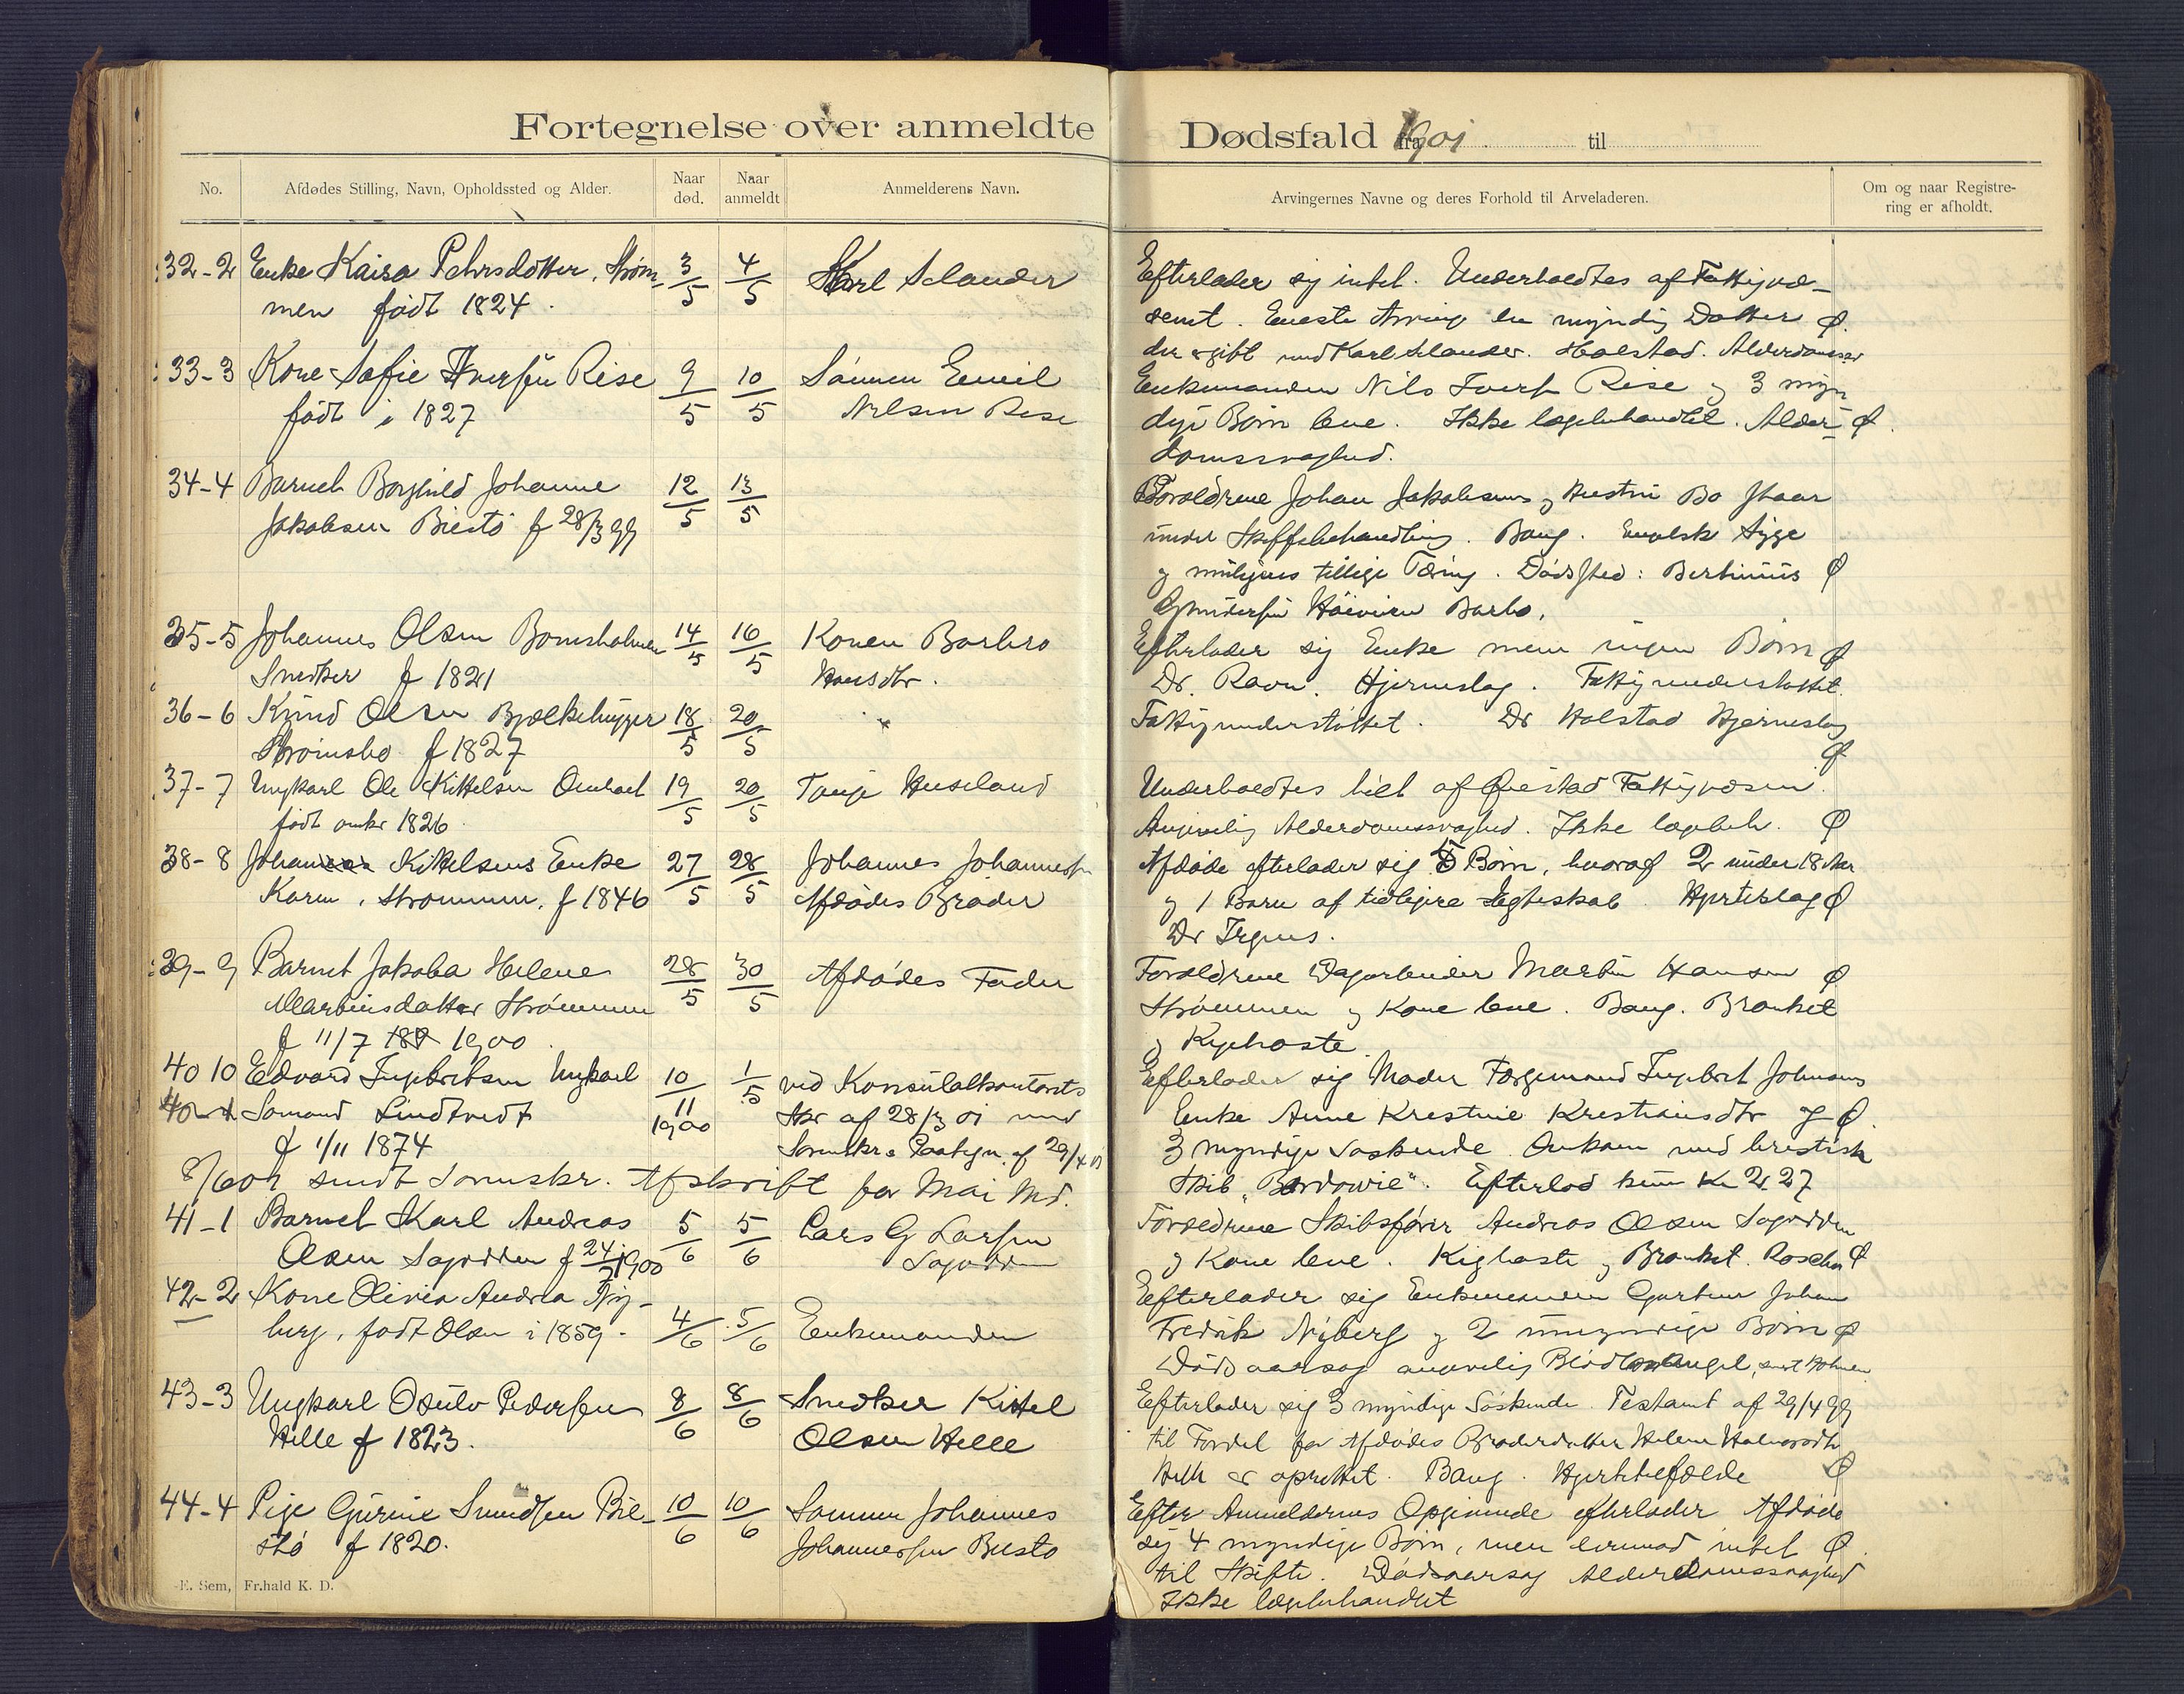 Fortegnelse over anmeldte Dødsfald fra 1901 til
No. Afdødes Stilling, Navn, Opholdssted og Alder. Naar død. Naar anmeldt Anmelderens Navn. Arvingernes Navne og deres Forhold til Arveladeren. Om og naar Registrering er afholdt.
32-2 Enke Kaisa Pehrsdotter, Strøm- 3/5 4/5 Karl Selander
men født 1824.
Efterlader sig intet. Underholdtes af Fattigvæ-
senet. Eneste Arving en myndig Datter Ø.
der er gift med Karl Selander. Halstad. Alderdomssv
33-3 Kone Sofie Iversen Rise 9/5 10/5 Sønnen Emil
født i 1827 Nilsen Rise
Enkemanden Nils Iversen Rise og 3 myn
dige Børn leve. Ikke lægebehandlet. Alder- Ø.
domssvaghed.
34-4 Barnet Borghild Johanne 12/5 13/5
Jakobsen Biestø f 28/3 99
Forældrene Johan Jakobsens og Hustru Bo staar
under Skiftebehandling. Bang. Engelsk Syge
og muligens tillige Tæring. Dødssted: Bertinius Ø
Gundersen Barbo.
35-5 Johannes Olsen Bomsholmen 14/5 16/5 Konen Barbro
Snedker f 1821 Hansdtr.
Efterlader sig Enke men ingen Børn Ø
Dr. Ravn. Hjerneslag. Fattigunderstøttet.
36-6 Knud Olsen Bjælkehugger 18/5 20/5
Strømsbo f 1827
Fattigunderstøttet. Dr Halstad Hjerneslag
Ø
37-7 Ungkarl Ole Kittelsen 19/5 20/5 Huseland
født omkr 1826
Underholdtes helt af Øiestad Fattigvæsen.
Angivelig Alderdomssvaghed. Ikke lægebeh. Ø
38-8 Johannes Kittelsens Enke 27/5 28/5 Johannes Johannessen
Karen, Strømmen, f 1846 Afdødes Broder
Afdøde efterlader sig 5 Børn, hvoraf 2 under 18 Aar
og 1 Barn af tidligere Ægteskab. Hjerteslag Ø
Dr Irgens.
39-9 Barnet Jakoba Helene 28/5 30/5 Afdødes Fader
Martinsdatter Strømmen
f 11/7 1900.
Forældrene Dagarbeider Martin Hansen Ø
Strømmen og Kone leve. Bang. Bronkit
og Kighoste.
40 10 Edvard Ingebretsen Ungkarl 10/11 1900 1/5 ved Konsulatkontorets
Sømand Lindtveit Skr af 28/3 01 med
f 1/11 1874 Sorenskr.s Paategn. af 29/4 01
Efterlader sig Moder Færgemand Ingebret Johnsens
Enke Anne Kristine Kristiansdtr og Ø.
3 myndige Søskende. Omkom med britisk
Skib "Bardowie". Efterlod kun Kr 2.27
8/6 01 sendt Sorenskr. Afskrift for Mai Md.
41-1 Barnet Karl Andreas 5/6 5/6 Lars G Larsen
Olsen Sagodden f 24/ 1900 Sagodden
Forældrene Skibsfører Andreas Olsen Sagodden
og Kone leve. Kighoste og Bronkit. Roscher Ø
42-2 Kone Olivia Andrea Ny- 4/6 5/6 Enkemanden
berg, født Olsen i 1859.
Efterlader sig Enkemanden Gartner Johan
Fredrik Nyberg og 2 umyndige Børn Ø
Dødsaarsag angivelig Blodmangel,
43-3 Ungkarl Osulv Pedersen 8/6 8/6 Snedker Kittel
Helle f 1823. Olsen Helle
Efterlader sig 3 myndige Søskende. Testamt af 29/4 99
til Fordel for Afdødes Broderdatter Helene Halvorsdtr
Helle er oprettet. Bang. Hjertefeil Ø
44-4 Pige Gurine Svendsen Bie- 10/6 10/6 Sønnen Johannes
stø f 1820. Johannessen Biestø
Efter Anmelderens Opgivende efterlader Afdøde
sig 4 myndige Børn, men intet Ø.
til Skifte. Dødsaarsag Alderdomssvaghed
Ikke lægebehandlet
E. Sem, Fr.hald K. D.